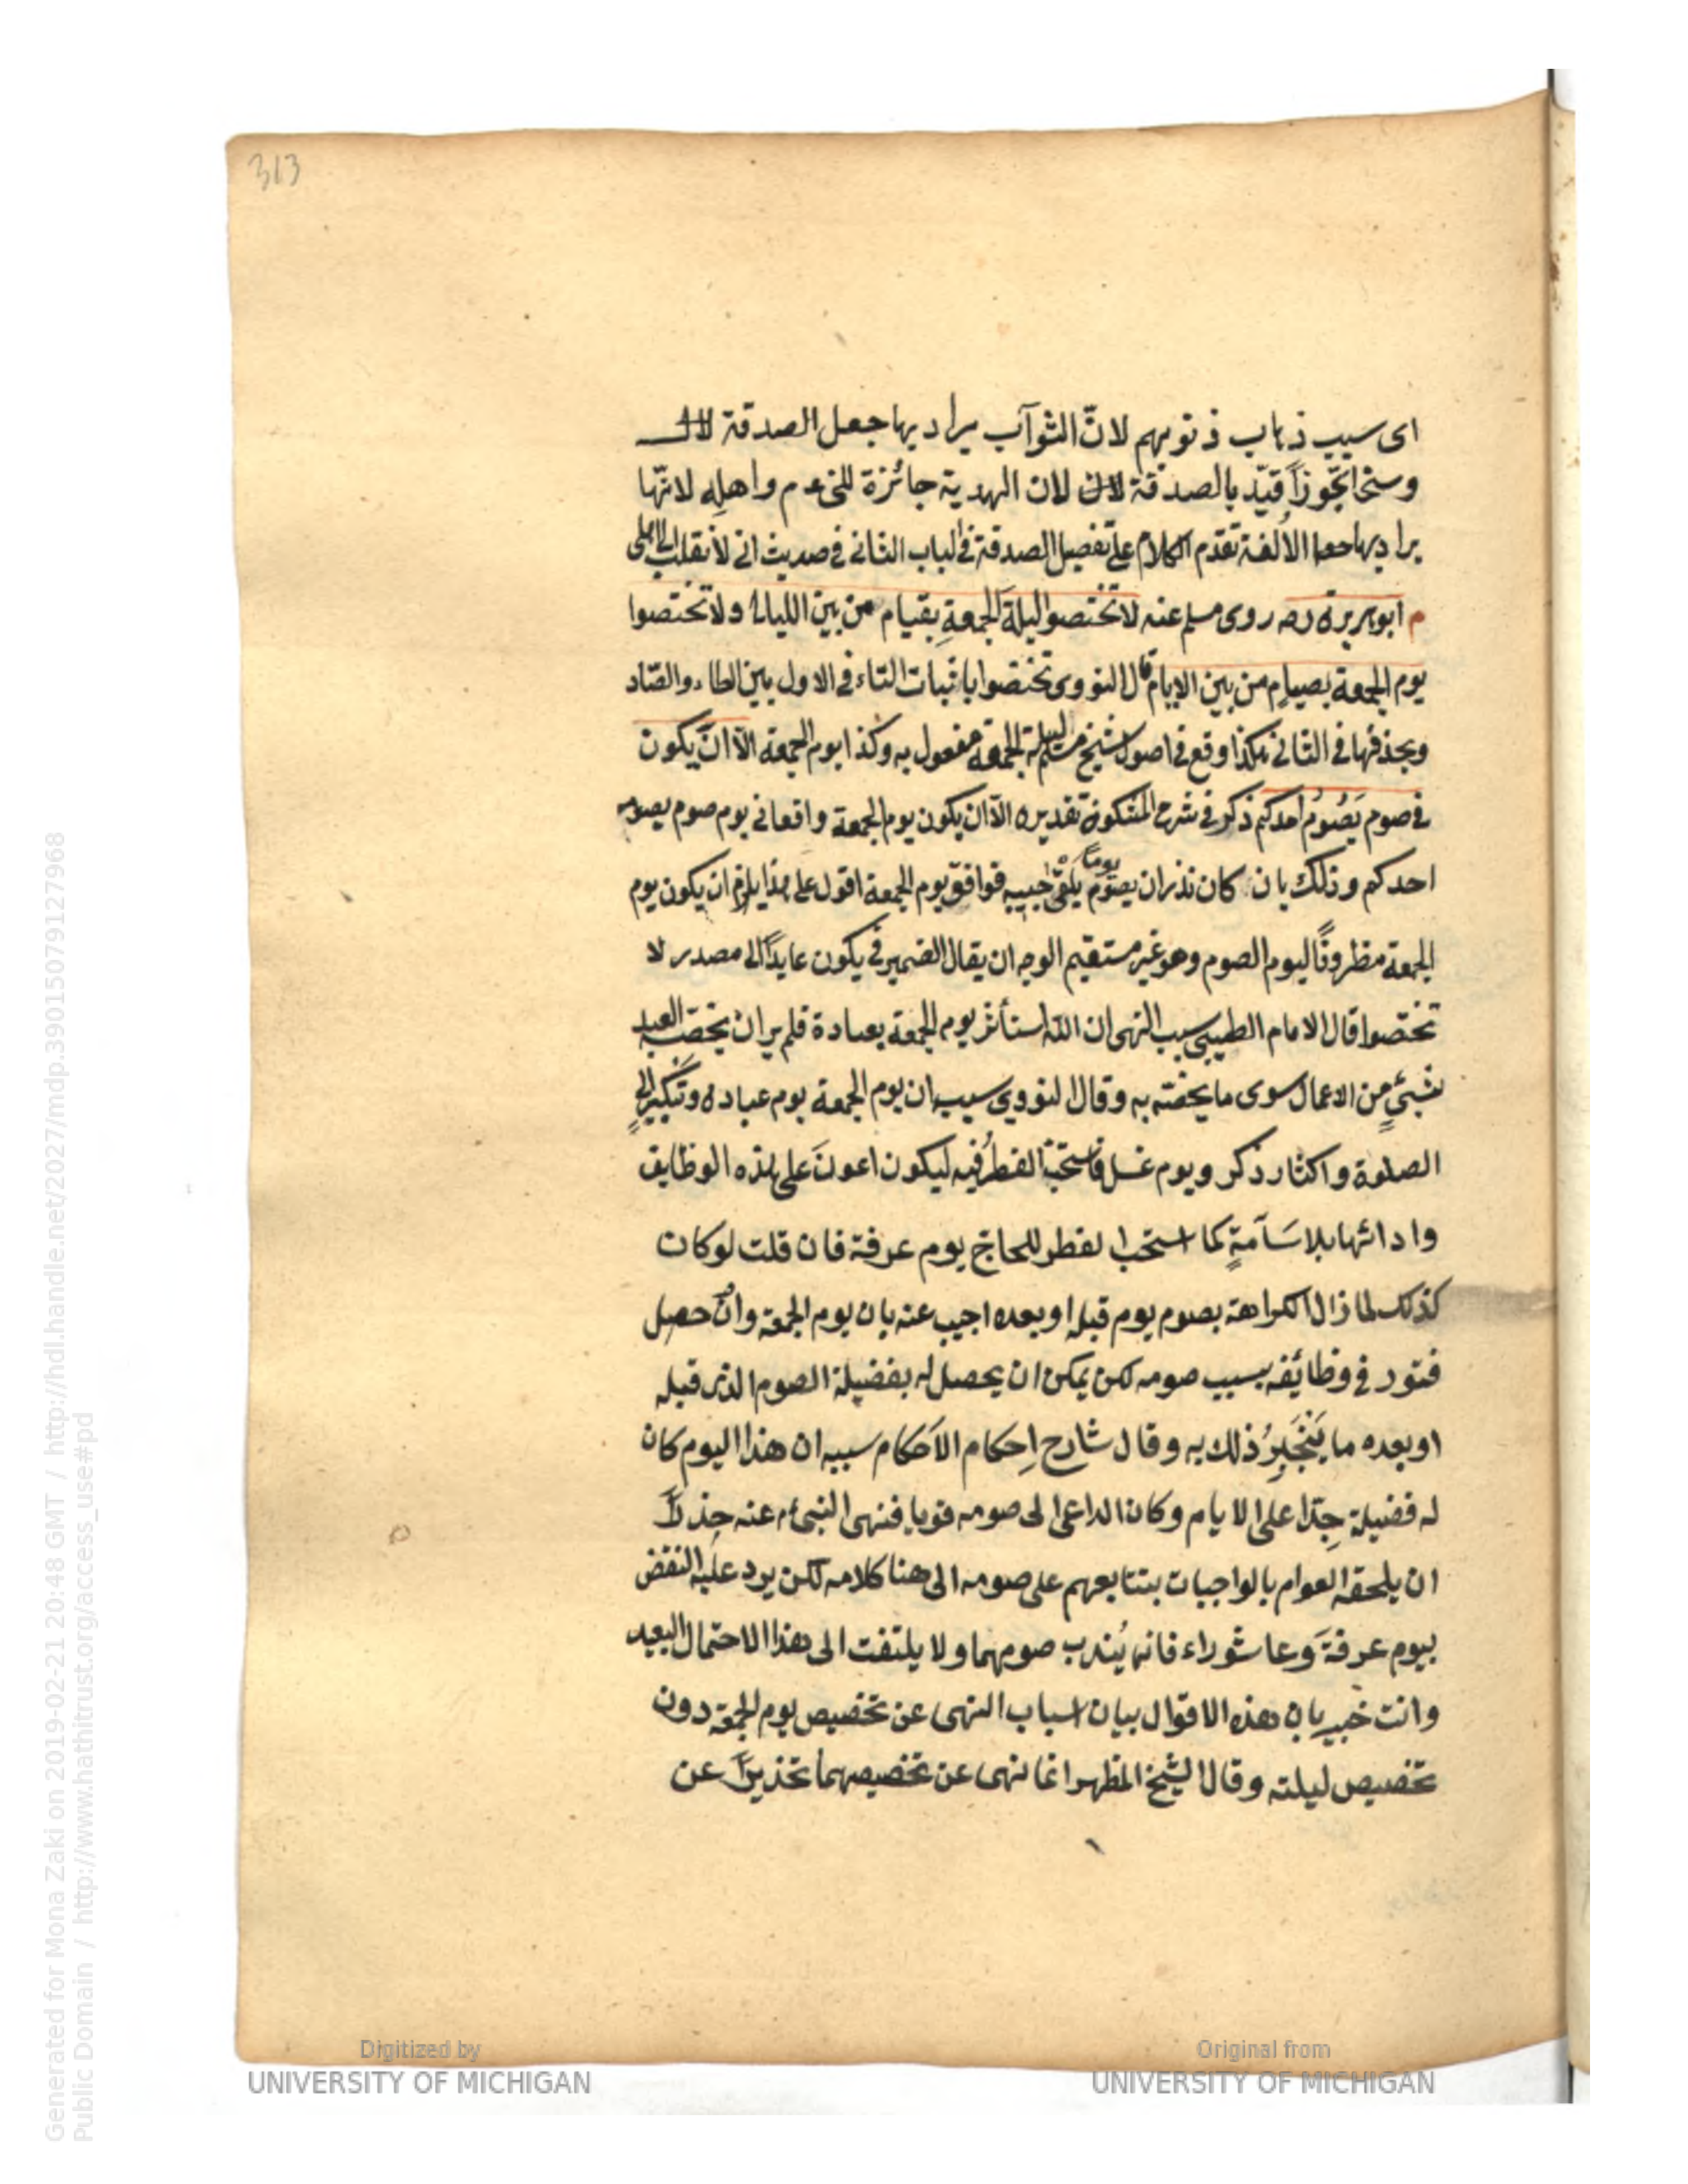 313
اى سبب ذهاب ذنوبهم لانّ الثوآب يراد بها جعل الصدقة
وسخا تجّوزاً قيّد بالصدقة لان الهدية جائزة للنبى عم واهله لانّها
يراد بها الألفة تقدّم الكلام على تفصيل الصدقة فى الباب الثانى فى حديث انى لأنقلب الى اهلى
م ابو هريرة رضه روى مسلم عنه لا تختصوا ليلة الجمعةِ بقيام من بين الليالى ولا تختصوا
يوم الجمعة بصيامٍ من بين الايام قال النووى تختصوا باثبات التاء فى الاول بين الخاء والصّاد
وبحذفها فى الثانى هكذا وقع فى اصول شيخ مسلم ليلة الجمعة مفعول به وكذا يوم الجمعة الّا ان يكون
فى صوم يَصُومُ احدكم ذكر فى شرح المشكوة تقديره الّا ان يكون يوم الجمعة واقعا فى يوم صوم يصومه
احدكم وذلك بان كان نذر ان يصوم يوماً يلقى حبيبه فوافق يوم الجمعة اقول على هذا يلزم ان يكون يوم
الجمعة مظروفًا ليوم الصوم وهو غير مستقيم الوجه ان يقال الضمير فى يكون عايداً الى مصدر لا
تختصوا قال الامام الطيبى سبب النهى ان اللّه استأثر يوم الجمعة بعبادة فلم ير ان يخصّه العبد
بشيئٍ من الاعمال سوى ما يخصّه به وقال النووى سببه ان يوم الجمعة يوم عبادة وتبكيرٍ الى
الصلوة واكثار ذكر ويوم غسل فاستحبّ الفطرُ فيه ليكون اعونَ على هذه الوظايف
وادائها بلا سَآمةٍ كما استحب الفطر للحاج يوم عرفة فان قلت لو كان
كذلك لما زال الكراهة بصوم يوم قبله او بعده اجيب عنه بان يوم الجمعة وان حصل
فتور فى وظائفه بسبب صومه لكن يمكن ان يحصل له بفضيلة الصوم الذى قبله
او بعده ما يَنْجَبِرُ ذلك به وقال شارح اِحكام الاَحكام سببه ان هذا اليوم كان
له فضيلة جِدّا على الايام وكان الداعى الى صومه قويا فنهى النبىّ م عنه حِذراً
ان يلحقه العوام بالواجبات بتتابعهم على صومه الى هنا كلامه لكن يرد عليه النقض
بيوم عرفةَ وعاشوراء فانه يُندب صومهما ولا يلتفت الى هذا الاحتمال البعيد
وانت خبير بان هذه الاقوال بيان اسباب النهى عن تخصيص يوم الجمعة دون
تخصيص ليلته وقال الشيخ المظهر انما نهى عن تخصيصهما تحذيراً عن
Digitized by
UNIVERSITY OF MICHIGAN
Original from
UNIVERSITY OF MICHIGAN
Generated for Mona Zaki on 2019-02-21 20:48 GMT / http://hdl.handle.net/2027/mdp.39015079127968
Public Domain / http://www.hathitrust.org/access_use#pd